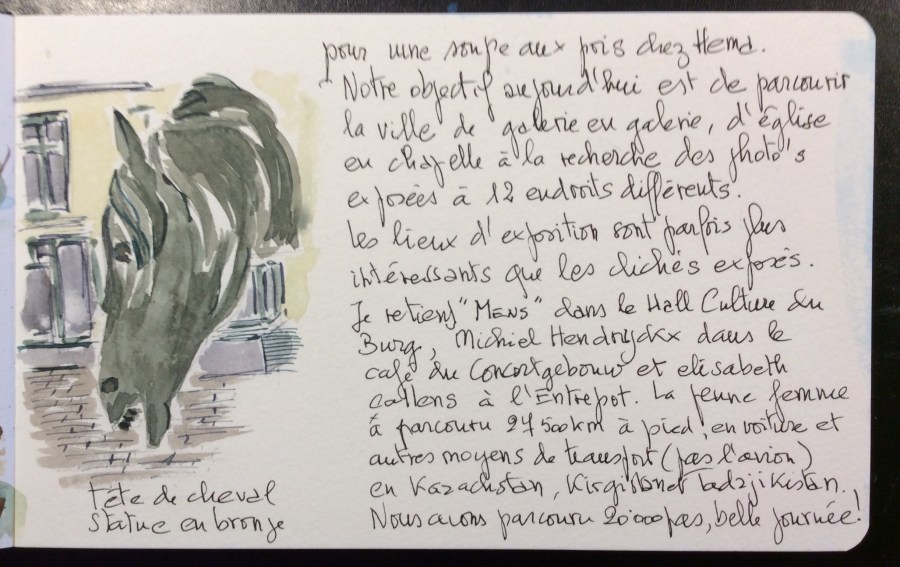 pour une soupe aux pois chez Hema.
Notre objectif aujourd'hui est de parcourir
la ville de galerie en galerie, d'église
en chapelle à la recherche des photo's
exposées à 12 endroits différents.
Les lieux d'exposition sont parfois plus
intéressants que les clichés exposés.
Je retiens "MENS" dans le Hall Culture du
Burg, Michiel Hendryckx dans le
café du Concertgebouw et elisabeth
callens à l'Entrepot. La jeune femme
à parcouru 27 500 km à pied, en voiture et
autres moyens de transport (pas l'avion)
en Kazachstan, Kirgistan et Tadzjikistan.
Nous avons parcouru 20'000 pas, belle journée!
tête de cheval
statue en bronze